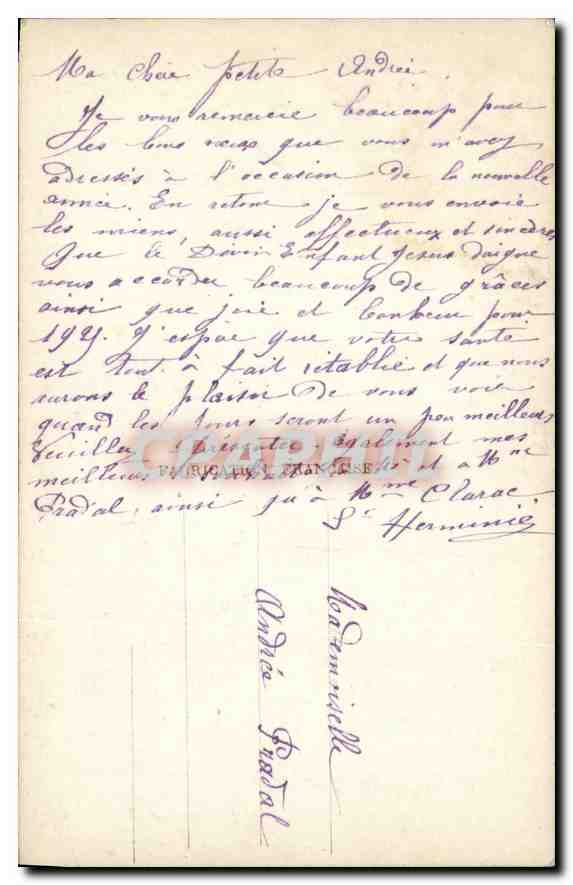 Ma chère petite Andrée,
Je vous remercie beaucoup pour
les bons vœux que vous m'avez
adressés à l'occasion de la nouvelle
année. En retour je vous envoie
les miens, aussi affectueux et sincères
Que le Divin Enfant Jésus daigne
vous accorder beaucoup de grâces
ainsi que joie et bonheur pour
1921. J'espère que votre santé
est tout à fait rétablie et que nous
aurons le plaisir de vous voir
quand les jours seront un peu meilleurs
Veuillez présenter également mes
meilleurs et à Mme
Pradal, ainsi qu'à Mme Clarac.
Sr Herminie
CPAPHIL
FABRICATION FRANÇAISE
Mademoiselle
Andrée Pradal